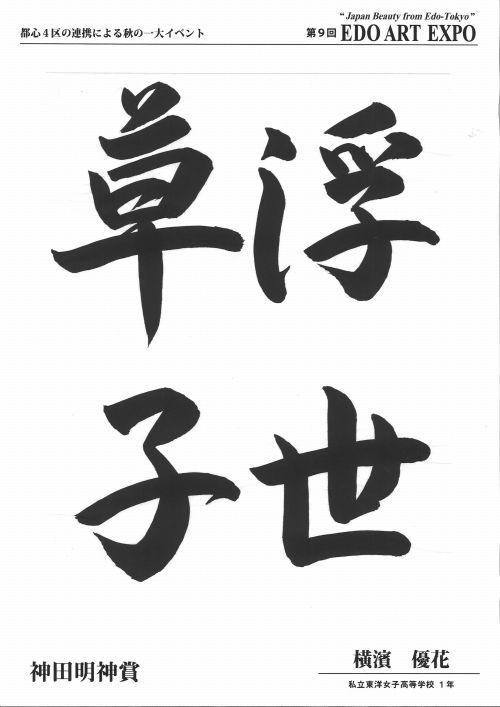 都心4区の連携による秋の一大イベント
"Japan Beauty from Edo-Tokyo"
第9回 EDO ART EXPO
浮世
草子
神田明神賞
横濱 優花
私立東洋女子高等学校 1年